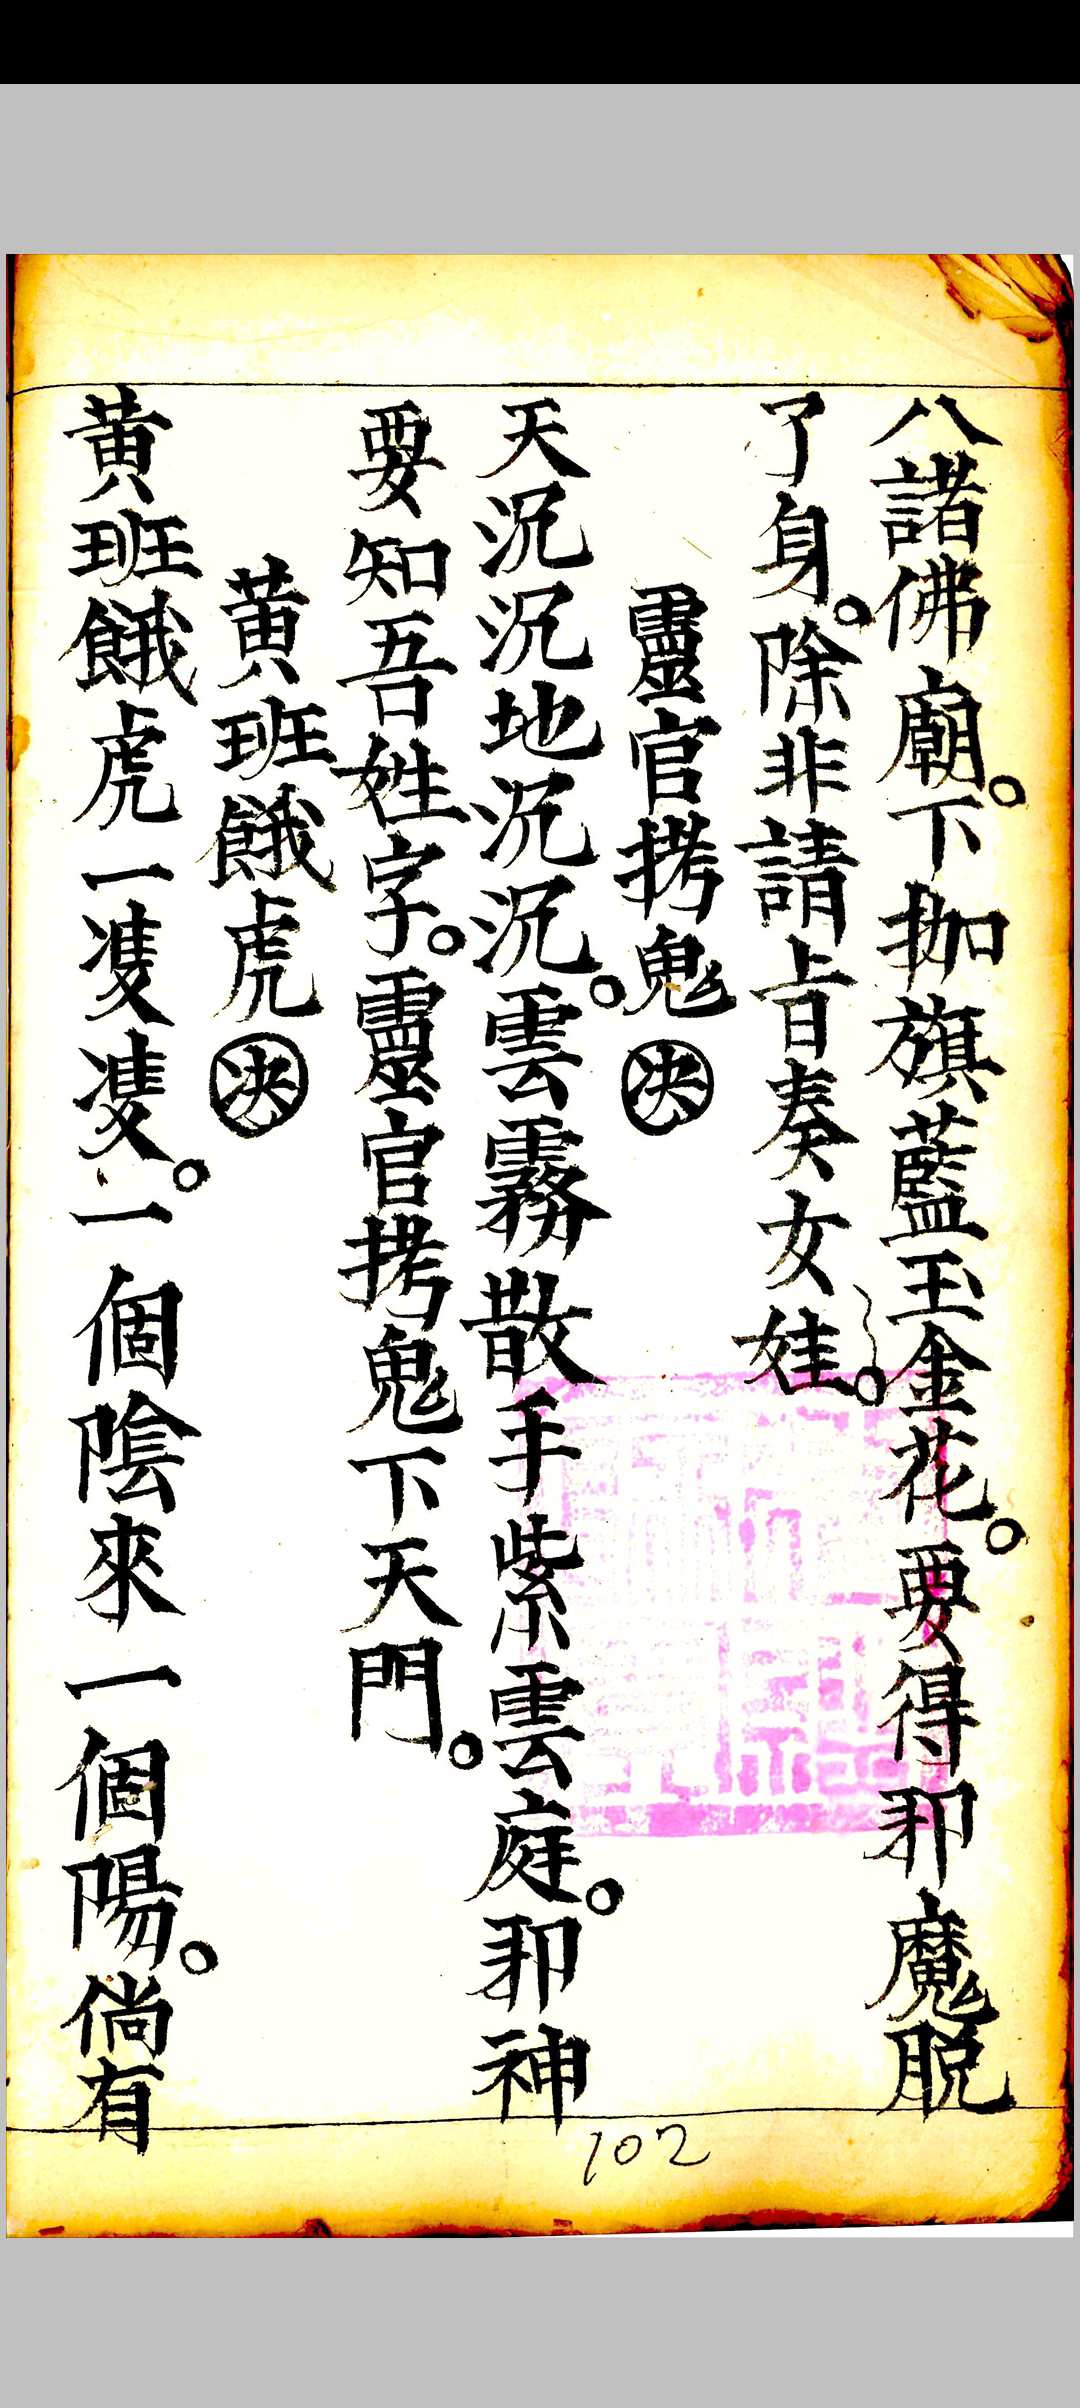 八諸佛廟。下拁旗藍玉金花。要得邪魔脫
了身。除非請旨奏女娃。
靈官拷鬼㊎決
天沉沉地沉沉。雲霧散手紫雲庭。邪神
要知吾姓字。靈官拷鬼下天門。
黃班餓虎決
黃班餓虎一凄凄。一個陰來一個陽。倘有
102